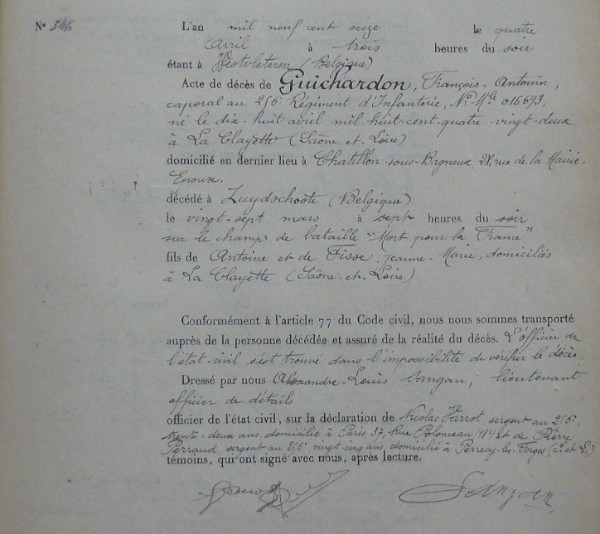 N° 346
L'an mil neuf cent seize le quatre
avril à trois heures du soir
étant à Westvleteren (Belgique)
Acte de décès de Guichardon, François-Antonin,
caporal au 256e Régiment d'Infanterie, N° Mle 016693,
né le dix-huit avril mil-huit-cent-quatre-vingt-deux
à La Clayette (Saône-et-Loire)
domicilié en dernier lieu à Chatillon-sous-Bagneux, 28, rue de la Mairie.
Epoux.
décédé à Zuydschoote (Belgique)
le vingt-sept mars à sept heures du soir
sur le champ de bataille "Mort pour la France"
fils de Antoine et de Jeanne-Marie, domiciliés
à La Clayette (Saône-et-Loire)
Conformément à l'article 77 du Code civil, nous nous sommes transporté
auprès de la personne décédée et assuré de la réalité du décès. L'officier de
l'état-civil s'est trouvé dans l'impossibilité de vérifier le décès.
Dressé par nous Alexandre-Louis Sangan, lieutenant
officier de détails
officier de l'état civil, sur la déclaration de Nicolas sergent au 256e
trente-deux ans, domicilié à Paris 37, Rue Polonceau (18e) et de Pierre
Perraud, sergent au 256e vingt-cinq ans, domicilié à Perrecy-les-Forges (S. et L.)
témoins, qui ont signé avec nous, après lecture.
Sangan